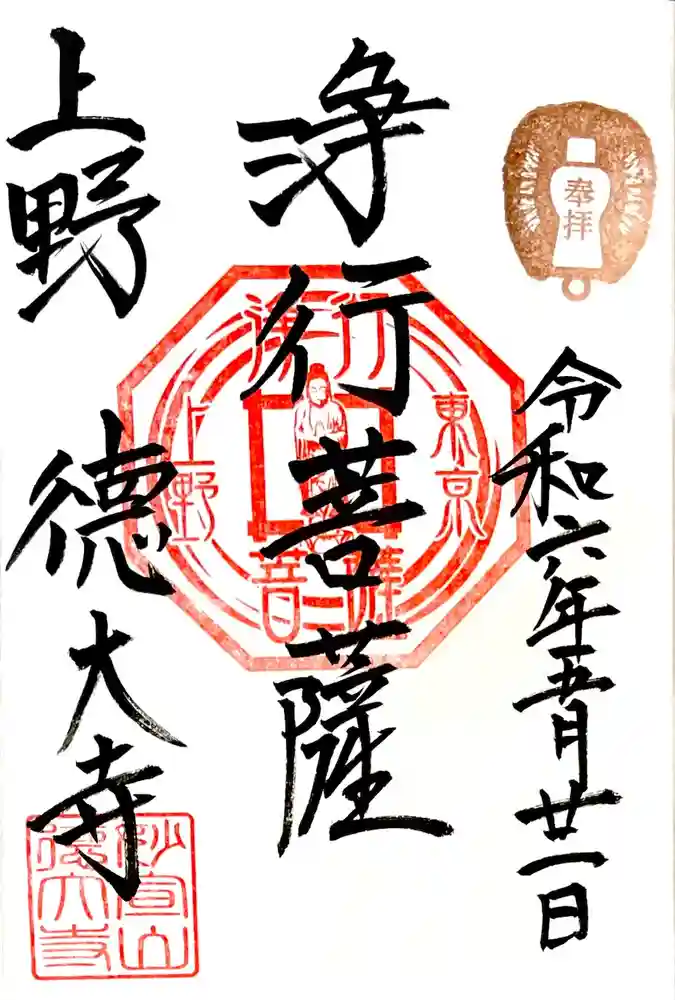 奉拝
令和六年五月廿一日
浄行菩薩
浄行
東京
上野
菩薩
上野 徳大寺
妙宣山
徳大寺